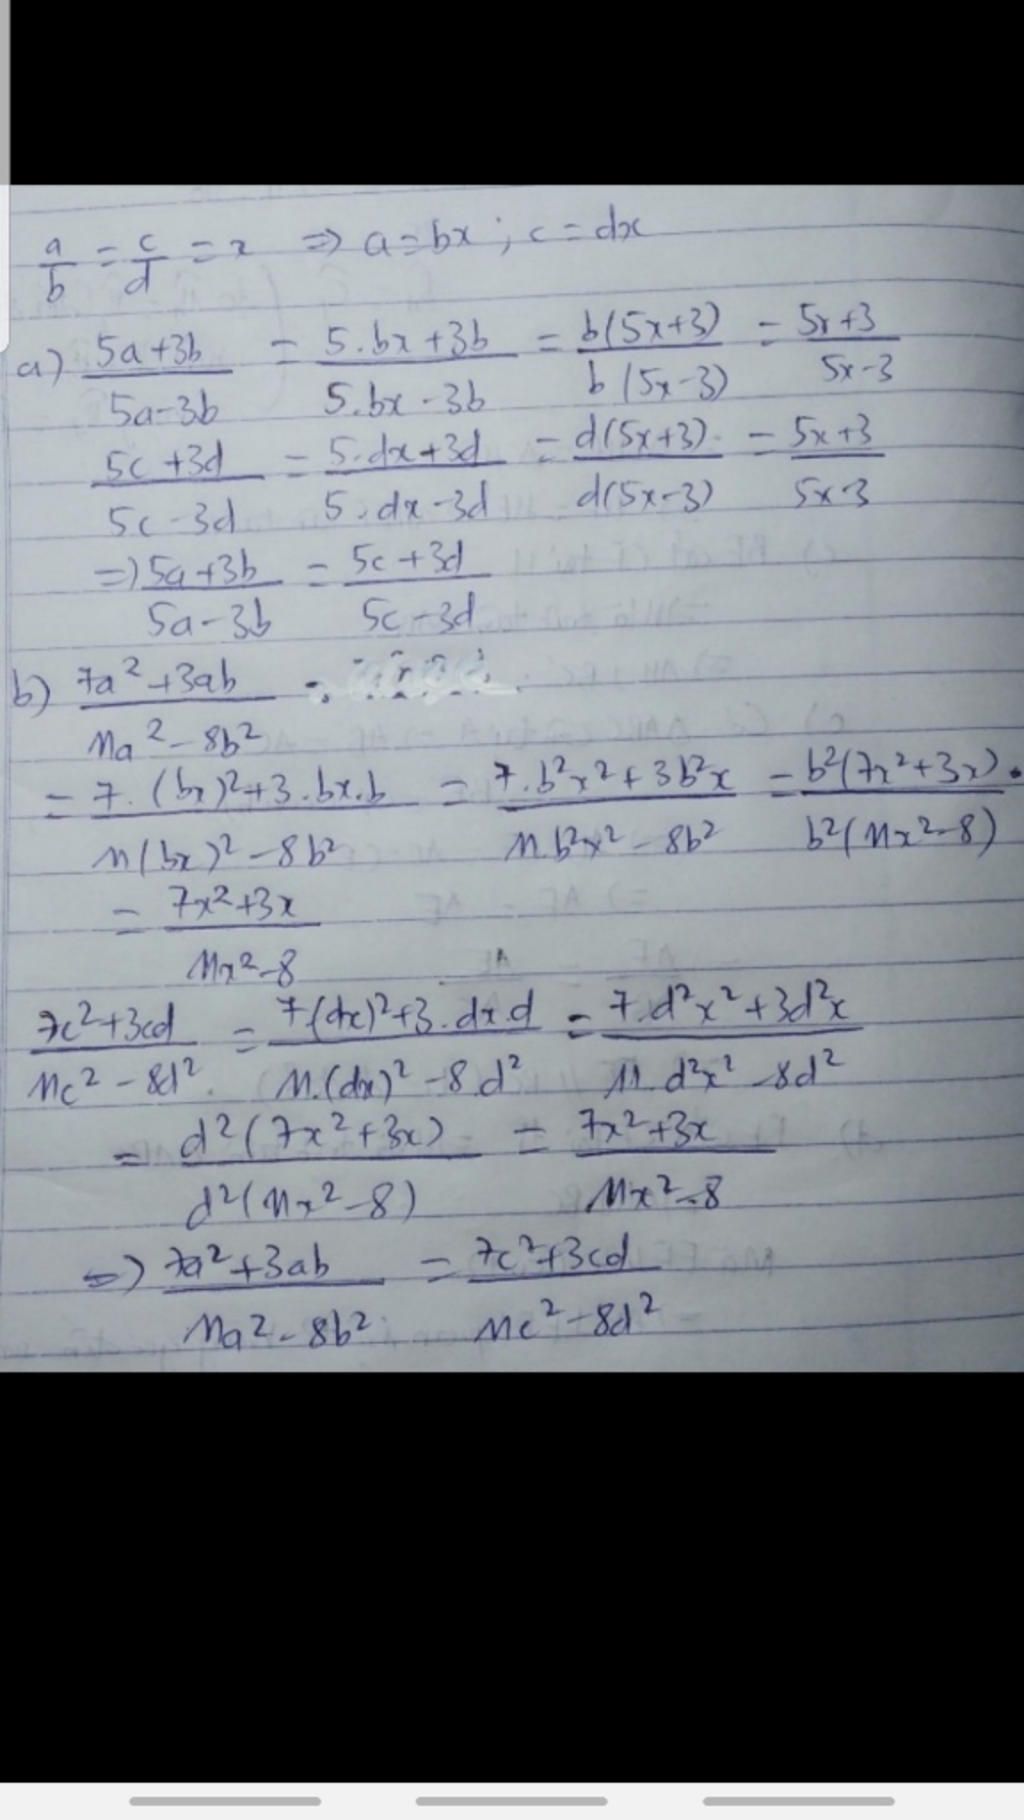 a/b = c/d = x => a = bx ; c = dx
a) (5a+3b)/(5a-3b) = (5.bx+3b)/(5.bx-3b) = b(5x+3)/b(5x-3) = (5x+3)/(5x-3)
(5c+3d)/(5c-3d) = (5.dx+3d)/(5.dx-3d) = d(5x+3)/d(5x-3) = (5x+3)/(5x-3)
=> (5a+3b)/(5a-3b) = (5c+3d)/(5c-3d)
b) (7a²+3ab)/(11a²-8b²)
= (7.(bx)²+3.bx.b)/(11(bx)²-8b²) = (7.b²x²+3b²x)/(11.b²x²-8b²) = b²(7x²+3x)/b²(11x²-8)
= (7x²+3x)/(11x²-8)
(7c²+3cd)/(11c²-8d²) = (7.(dx)²+3.dx.d)/(11.(dx)²-8.d²) = (7.d²x²+3d²x)/(11.d²x²-8d²)
= d²(7x²+3x)/d²(11x²-8) = (7x²+3x)/(11x²-8)
=> (7a²+3ab)/(11a²-8b²) = (7c²+3cd)/(11c²-8d²)